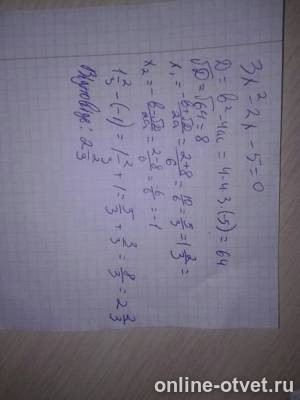 3x²-2x-5=0
D = b²-4ac = 4-4·3·(-5) = 64
√D = √64 = 8
x₁ = -b+√D/2a = 2+8/6 = 10/6 = 5/3 = 1 2/3 =
x₂ = -b-√D/2a = 2-8/6 = -6/6 = -1
1 2/3 - (-1) = 1 2/3 + 1 = 5/3 + 3/3 = 8/3 = 2 2/3
: 2 2/3
online-otvet.ru